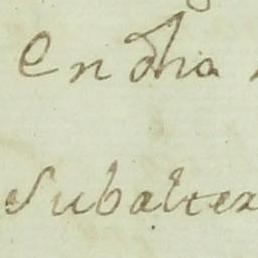 En dha
Subalter